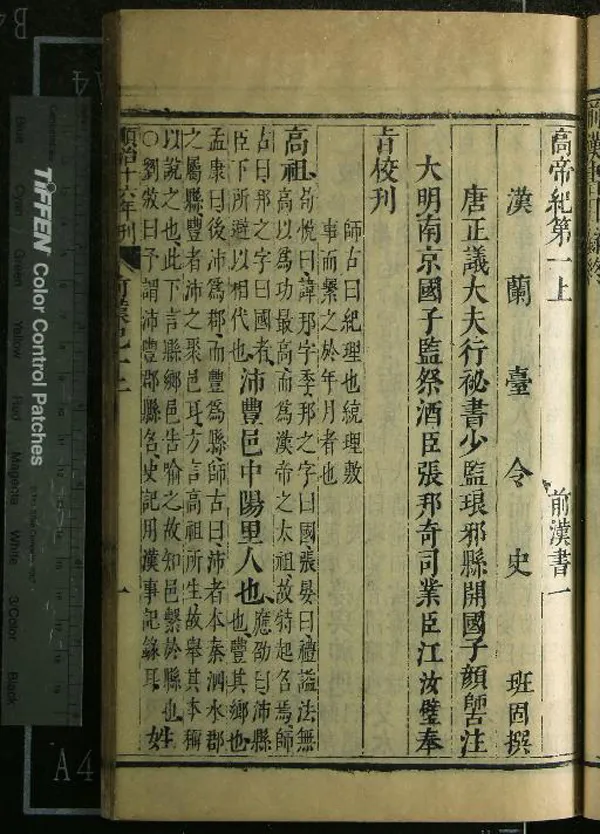 高帝紀第一上　前漢書一
漢蘭臺令史班固撰
唐正議大夫行祕書少監琅邪縣開國子顏師古注
大明南京國子監祭酒臣張邦奇司業臣江汝璧奉
旨校刊
師古曰紀理也統理眾
事而繫之於年月者也
高祖荀悅曰諱邦字季邦之字曰國張晏曰禮謚法無
高以為功最高而為漢帝之太祖故特起名焉師
古曰邦之字曰國者
臣下所避以相代也沛豐邑中陽里人也應劭曰沛縣
也豐其鄉也
孟康曰後沛為郡而豐為縣師古曰沛者本秦泗水郡
之屬縣豐者沛之聚邑耳方言高祖所生故舉其本稱
以說之也此下言縣鄉邑告喻之故知邑繫於縣也
○劉攽曰予謂沛豐郡縣名史記用漢事記錄耳姓
順治十六年刊
一
TIFFEN Color Control Patches
Blue
Cyan
Green
Yellow
Red
Magenta
White
3/Color
Black
A4